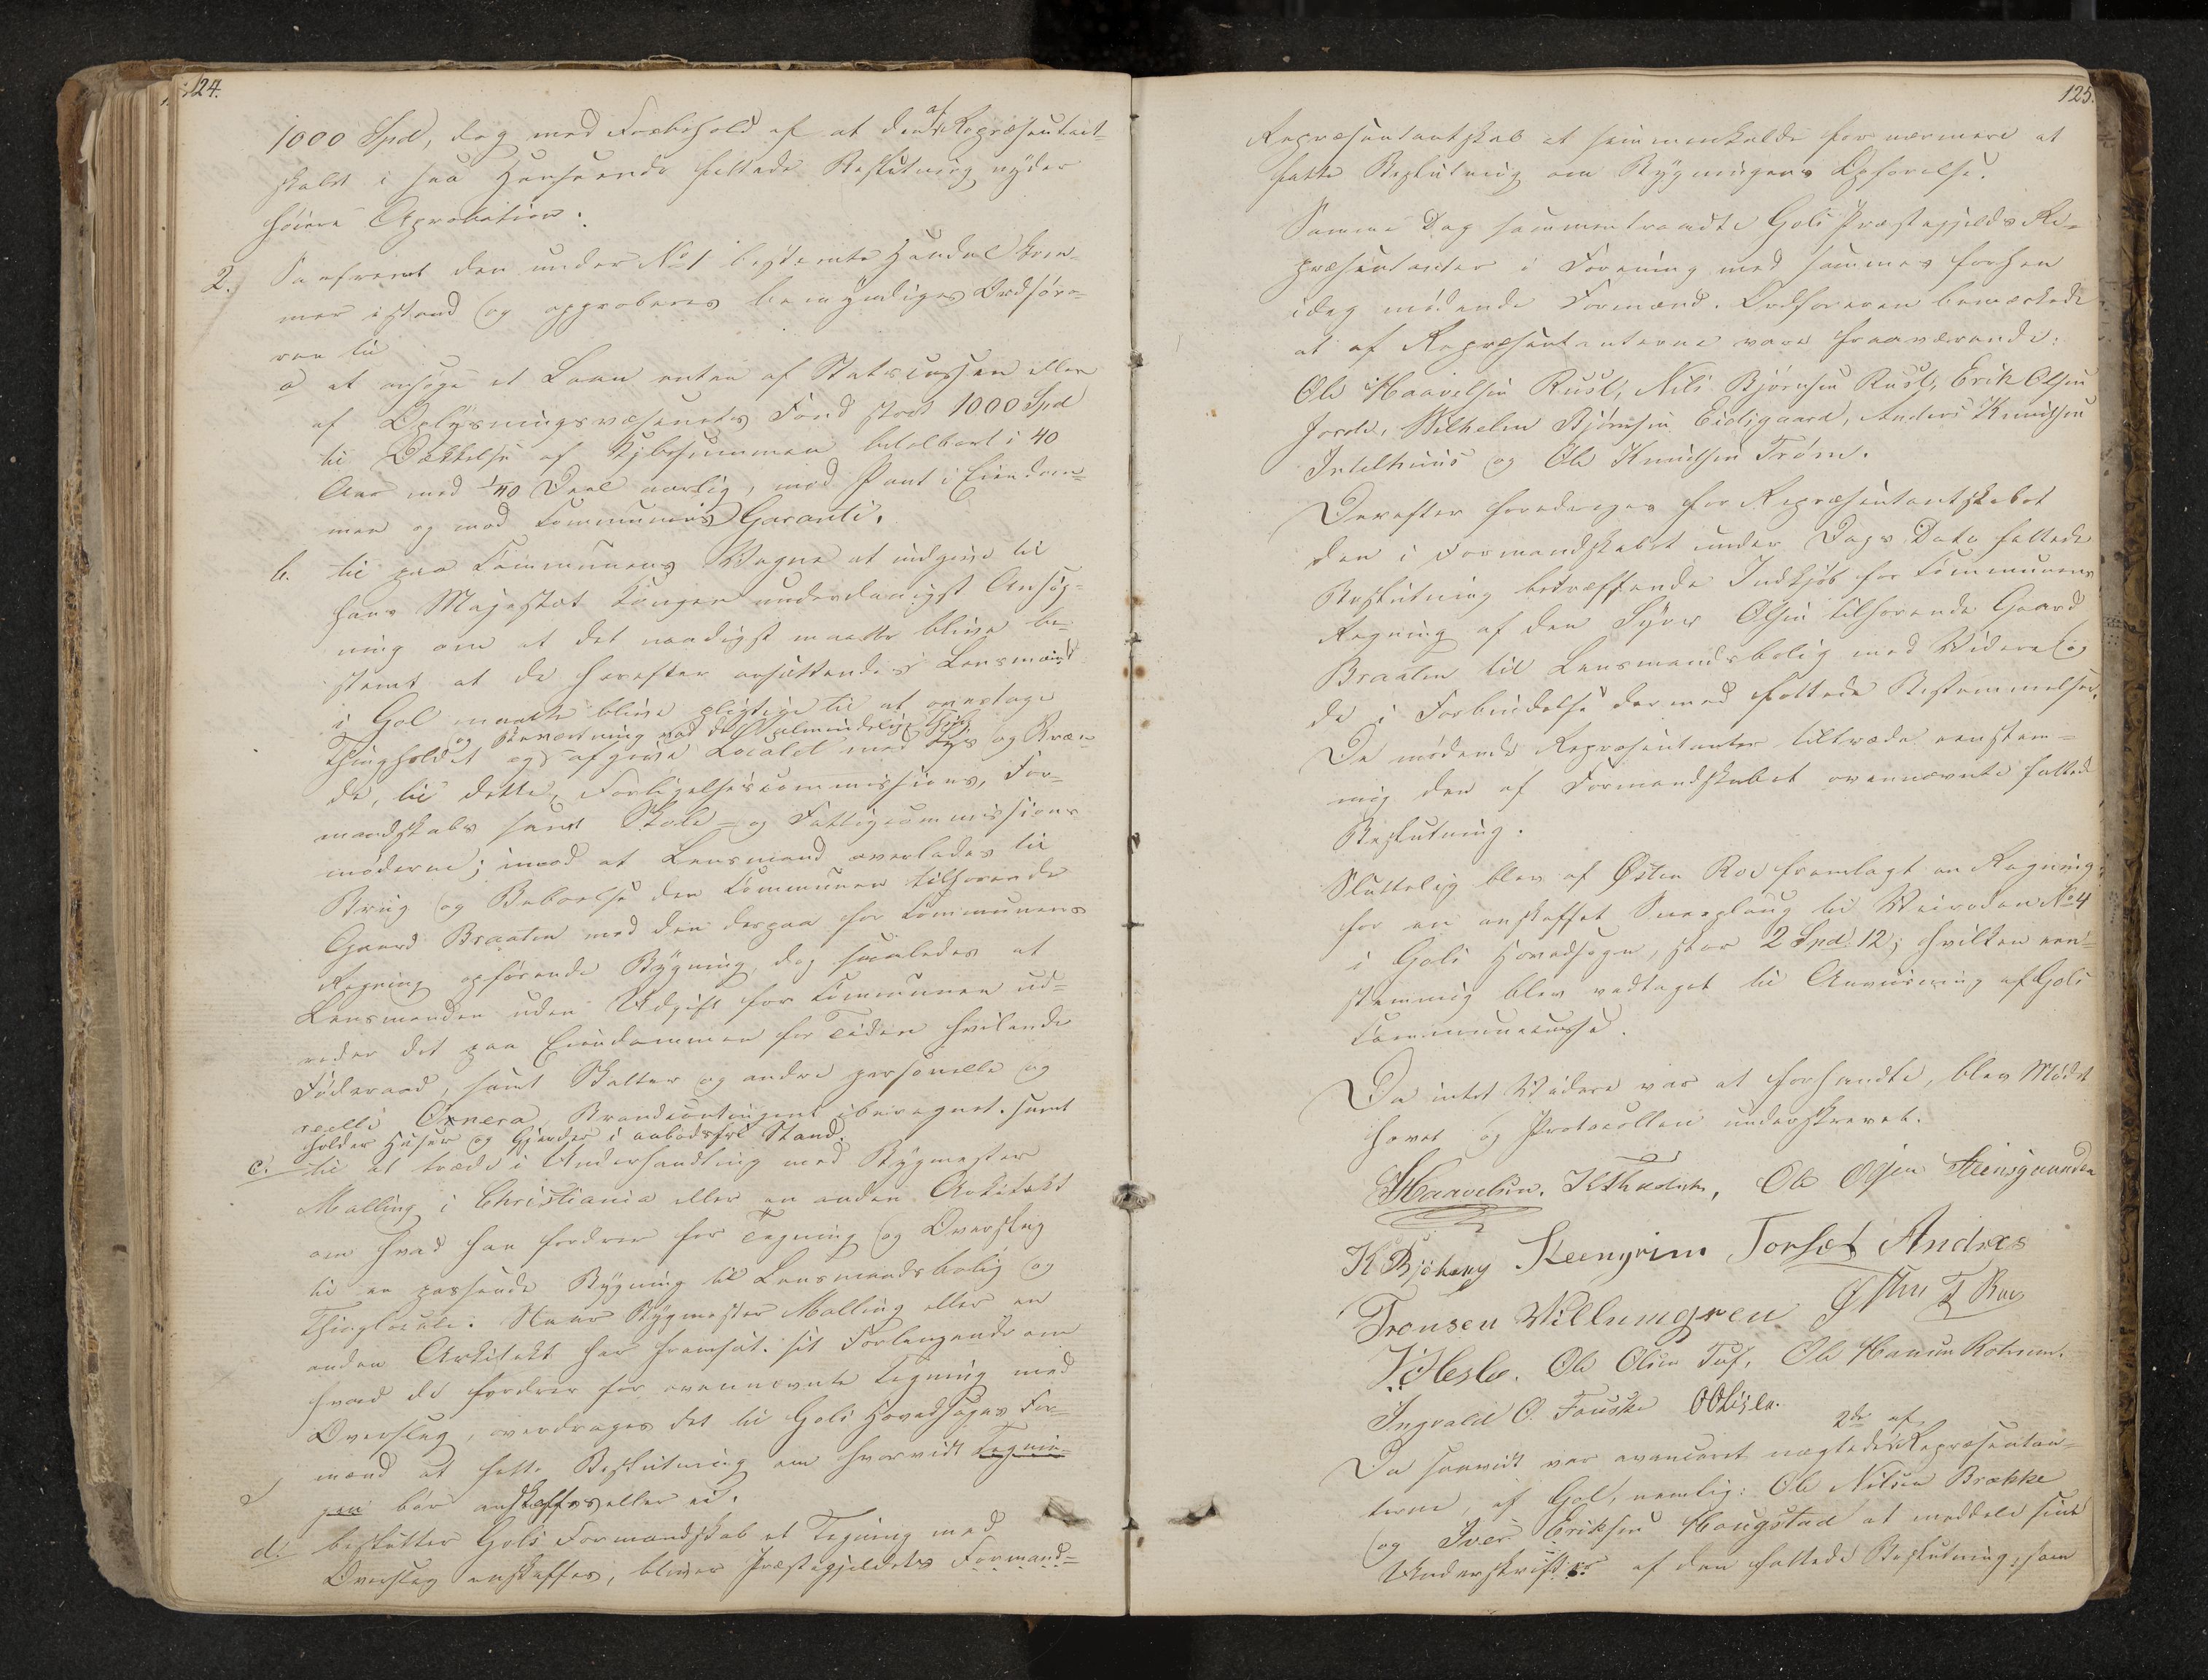 124.
1000 Spd, dog med Forbehold af at den af Repræsentant-
skabet i saa Henseende fattede Beslutning nyder
høiere Aprobation.
2. Saafremt den under No 1 bestemte Handel kom-
mer istand og approberes bemyndiges Ordføre-
ren til
a at ansøge et Laan enten af Statscassen eller
af Oplysningsvæsenets Fond stort 1000 Spd
til Dækkelse af Kjøbesummen betalbart i 40
Aar med 1/40 Deel aarlig, mod Pant i Eiendom-
men og mod Communens Garanti.
b. til paa Communens Vegne at indgive til
Hans Majestæt Kongen underdanigst Ansøg-
ning om at det naadigst maatte blive be-
stemt at de herefter ansættendes Lensmænd
i Gol maatte blive pligtige til at overtage
og Beværtning ved de almindelige Thing
Thingholdet og afgive Localet med Lys og Bræn-
de, til dette, Forligelsescommissions, For-
mandskabs samt Skole- og Fattigcommissions-
møderne; imod at Lensmand overlades til
Brug og Beboelse den Communen tilhørende
Gaard Braaten med den derpaa for Communens
Regning opførende Bygning, dog saaledes at
Lensmanden uden Udgift for Communen ud-
reder det paa Eiendommen for Tiden hvilende
Føderaad, samt Skatter og andre personelle og
reelle Onera, Brandcontingent iberegnet. samt
holder Huser og Gjerder i aabodsfri Stand.
c. til at træde i Underhandling med Bygmester
Malling i Christiania eller en anden Arkitekt
om hvad han fordrer for Tegning og Overslag
til en passende Bygning til Lensmandsbolig og
Thinglocale. Naar Bygmester Malling eller en
anden Arkitekt har fremsat sit Forlangende om
hvad de fordrer for ovennævnte Tegning med
Overslag, overdrages det til Gols Hovedsogns For-
mænd at fatte Beslutning om hvorvidt Tegnin-
gen bør anskaffes eller ei.
d. beslutter Gols Formandskab at Tegning med
Overslag anskaffes, bliver Præstegjeldets Formand-
125.
Repræsentantskab at sammenkalde for nærmere at
fatte Beslutning om Bygningens Opførelse.
Samme Dag sammentraadte Gols Præstegjelds Re-
præsentanter i Forening med sammes forhen
idag mødende Formænd. Ordføreren bemærkede
at af Repræsentanterne vare fraværende:
Ole Haavelsen Rust, Nils Bjørnsen Rust, Erik Olsen
Jorde, Wilhelm Bjørnsen Eidsgaard, Anders Knudsen
Intelhuus og Ole Knudsen Trøm.
Derefter foredroges for Repræsentantskabet
den i Formandskabet under Dags Dato fattede
Beslutning betræffende Indkjøb for Communens
Regning af den Syver Olsen tilhørende Gaard
Braaten til Lensmandsbolig med Videre og
de i Forbindelse dermed fattede Bestemmelser.
De mødende Repræsentanter tiltræde eenstem-
mig den af Formandskabet ovennævnte fattede
Beslutning.
Sluttelig blev af Østen Roe fremlagt en Regning
for en anskaffet Sneeploug til Veiroden No 4
i Gols Hovedsogn, stor 2 Spd 12; hvilken een-
stemmig blev vedtaget til Anviisning af Gols
Communecasse.
Da intet Videre var at forhandle, blev Mødet
hævet og Protocollen underskrevet.
Haavelsen. Ole Olsen Steinsgaarden
K Bjøberg Steengrim Torset Andres
Tronsen Villumgren Østen T Roe
Hesla. Ole Olsen Tuf, Ole
Ingvald O. Fauske
Da saavidt var avanceret nægtede 2de af Repræsentan-
terne, af Gol, nemlig: Ole Nilsen Brække
og Iver Eriksen Haugstad at meddele sine
Underskrifter af den fattede Beslutning, som